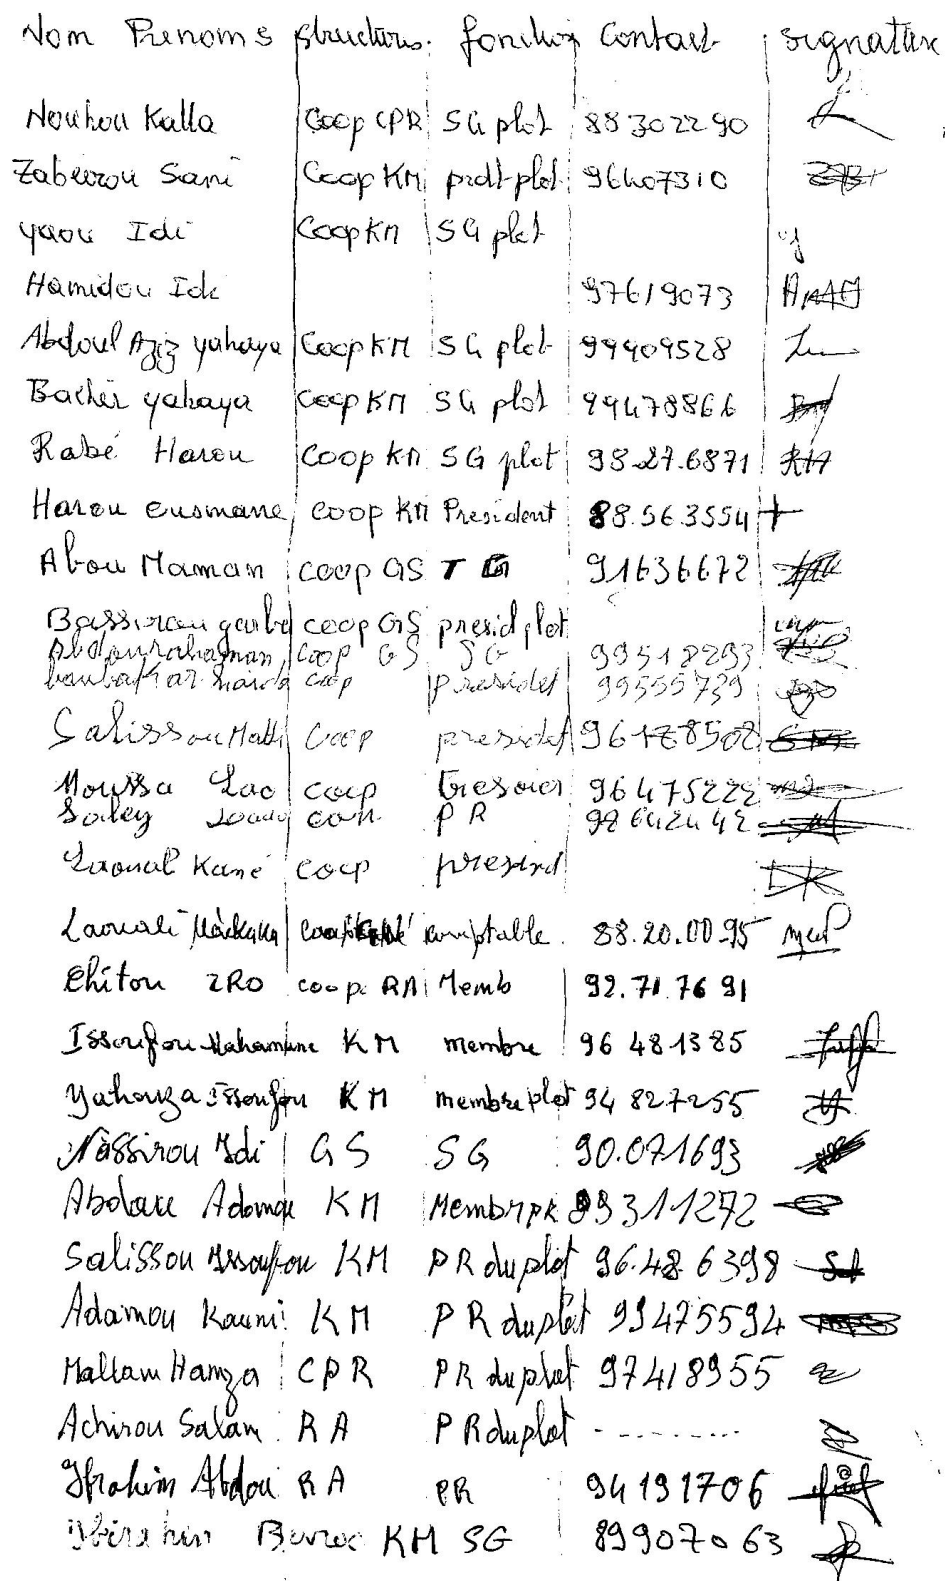 Nom Prenoms structures. fonction Contact signature
Nouhou Kalla Coop CPR SG plot 88302290
Zabeirou Sani Coop KM prdt plot 96407310
yaou Idi Coop KM SG plot
Hamidou Idi 97619073
Abdoul Aziz yahaya Coop KM SG plot 99409528
Bachir yahaya Coop KM SG plot 99478866
Rabé Harou Coop KM SG plot 98.27.6871 RH
Harou ousmane Coop KM President 88.563554 +
Abou Maman coop GS T G 91636672
Bassirou garba coop GS presid plot
Abdourahaman coop GS SG 99518293
boubakar coop presidet 99555739
Salissou Malli Coop presidet 96178508
Moussa Lao coop tresorier 96475222
Saley coop PR 98642442
Laoual Kané coop presind
Laouali comptable 88.20.00.95
Chitou IRO coop RA Memb 92.71.76 91
Issoufou Mahamane KM membre 96 481385
Yahouza Issoufou KM membre plot 94 827255
Nassirou Idi GS SG 90.071693
Abdou Adamou KM Membr 99311272
Salissou Issoufou KM PR du plot 96.48 6398
Adamou Kauni KM PR du plot 99475594
Mallam Hamza CPR PR du plot 97418955
Achirou Salam RA PR du plot - - - - - - - -
Ibrahim Abdou RA PR 94191706
Ibirahim KM SG 89907063